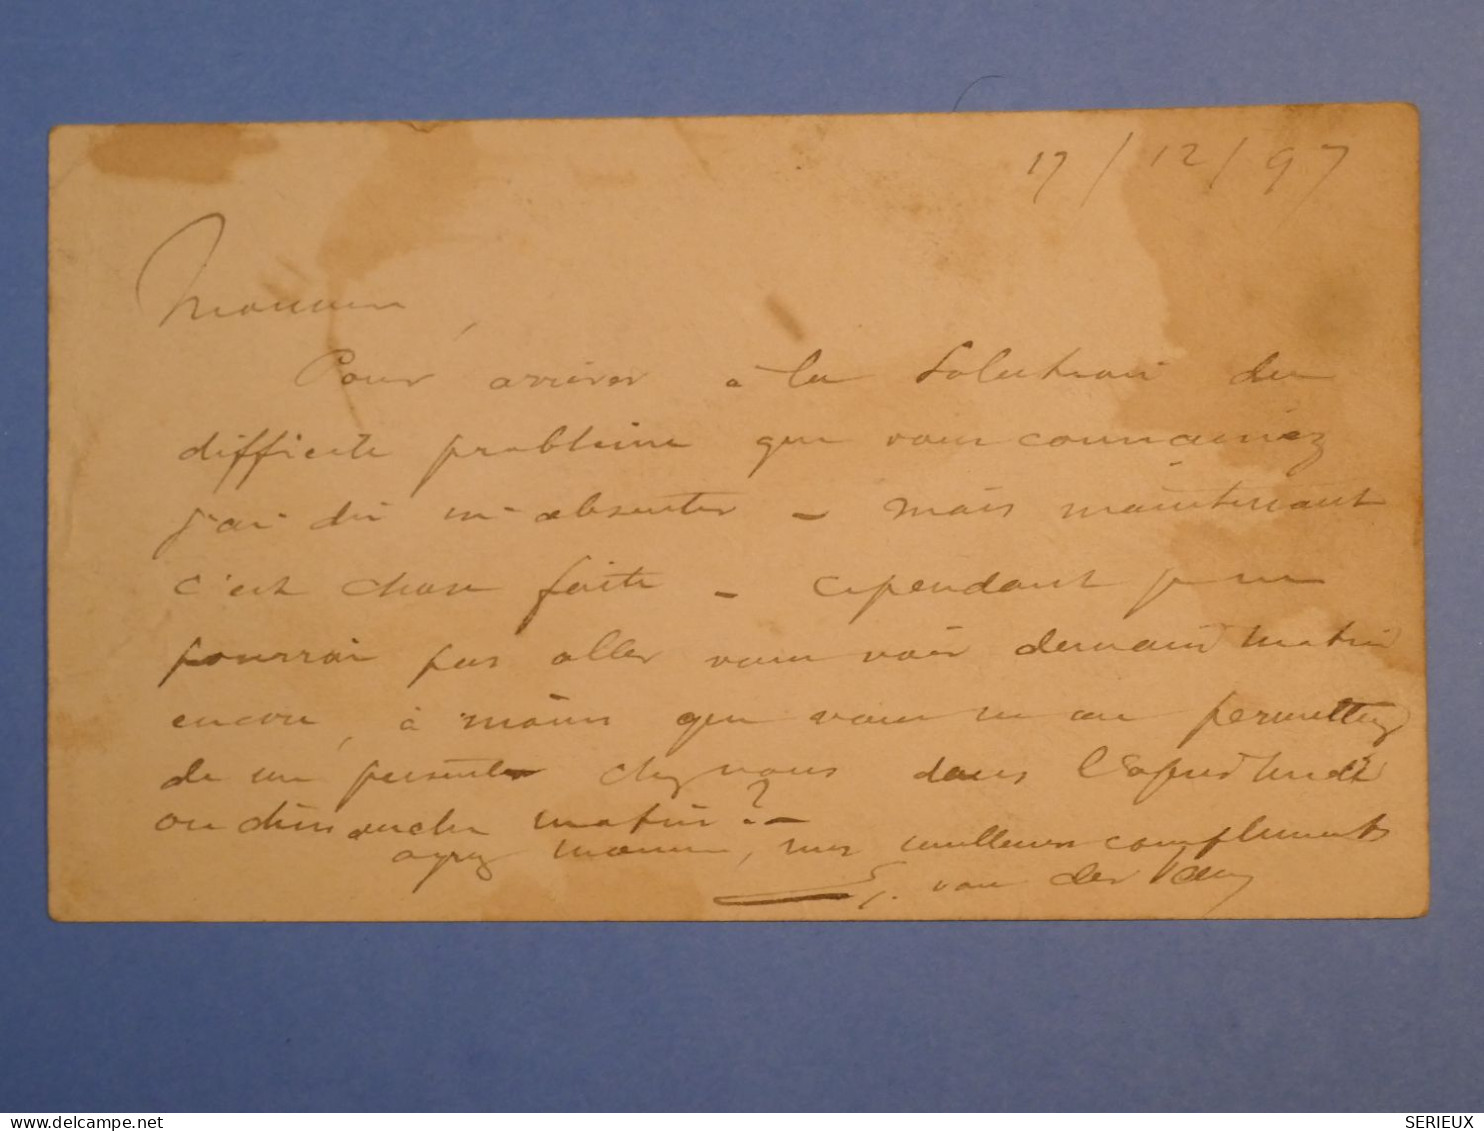 17/12/97
Monsieur,
Pour arriver à la solution du
difficile problème que vous connaissiez
j'ai dû m'absenter - mais maintenant
c'est chose faite - cependant je ne
pourrai pas aller vous voir demain matin
encore, à moins que vous ne me permettiez
de me présenter chez vous dans l'après midi
ou dimanche matin? -
agréez monsieur, mes meilleurs compliments
van der
delcampe.net
SERIEUX